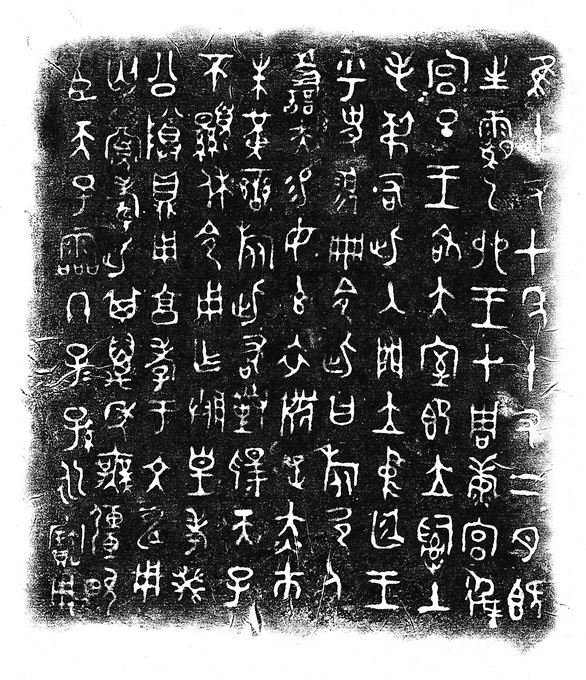 隹十又七年十又二月既
生霸乙卯王才周康宮徲
宮旦王各大室即立𤔲土
毛弔右此入門立中廷王
乎史翏冊令此曰旅邑人
善夫易女玄衣黹屯赤巿
朱黃䜌旅此敢對揚天子
不顯休令用乍朕皇考癸
公尊鼎用亯孝于文申用
匄眉壽此其萬年無疆畯
臣天子霝冬子孫永寶用